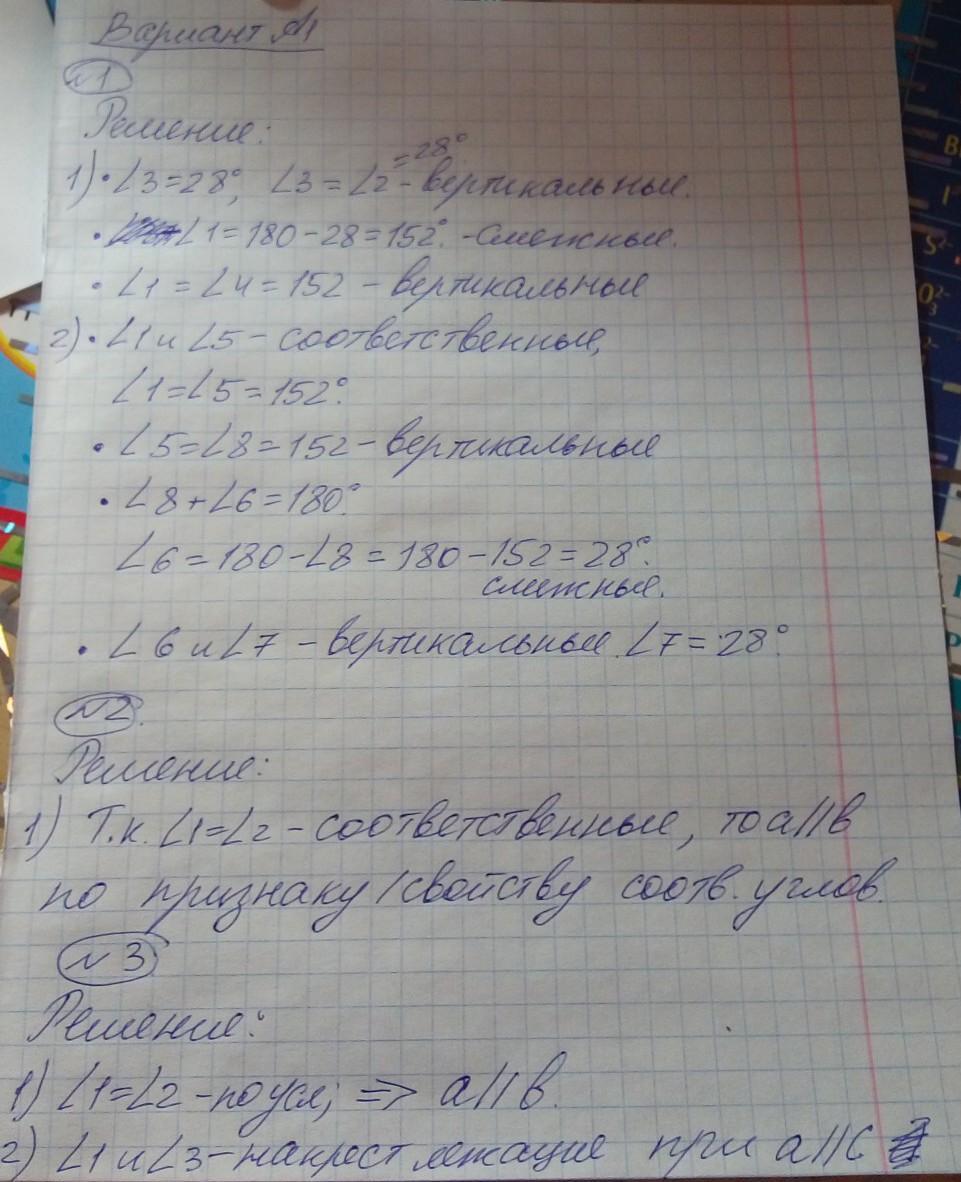 Вариант А1
№1
Решение:
1) • ∠3=28°, ∠3=∠2=28° - вертикальные.
• ∠1=180-28=152°. - смежные.
• ∠1=∠4=152 - вертикальные
2) • ∠1 и ∠5 - соответственные,
∠1=∠5=152°.
• ∠5=∠8=152 - вертикальные
• ∠8+∠6=180°.
∠6=180-∠8=180-152=28°.
смежные.
• ∠6 и ∠7 - вертикальные. ∠7=28°
№2.
Решение:
1) Т.к. ∠1=∠2 - соответственные, то a||b
по признаку/свойству соотв. углов.
№3
Решение:
1) ∠1=∠2 - по усл; => a||b.
2) ∠1 и ∠3 - накрест лежащие при a||c